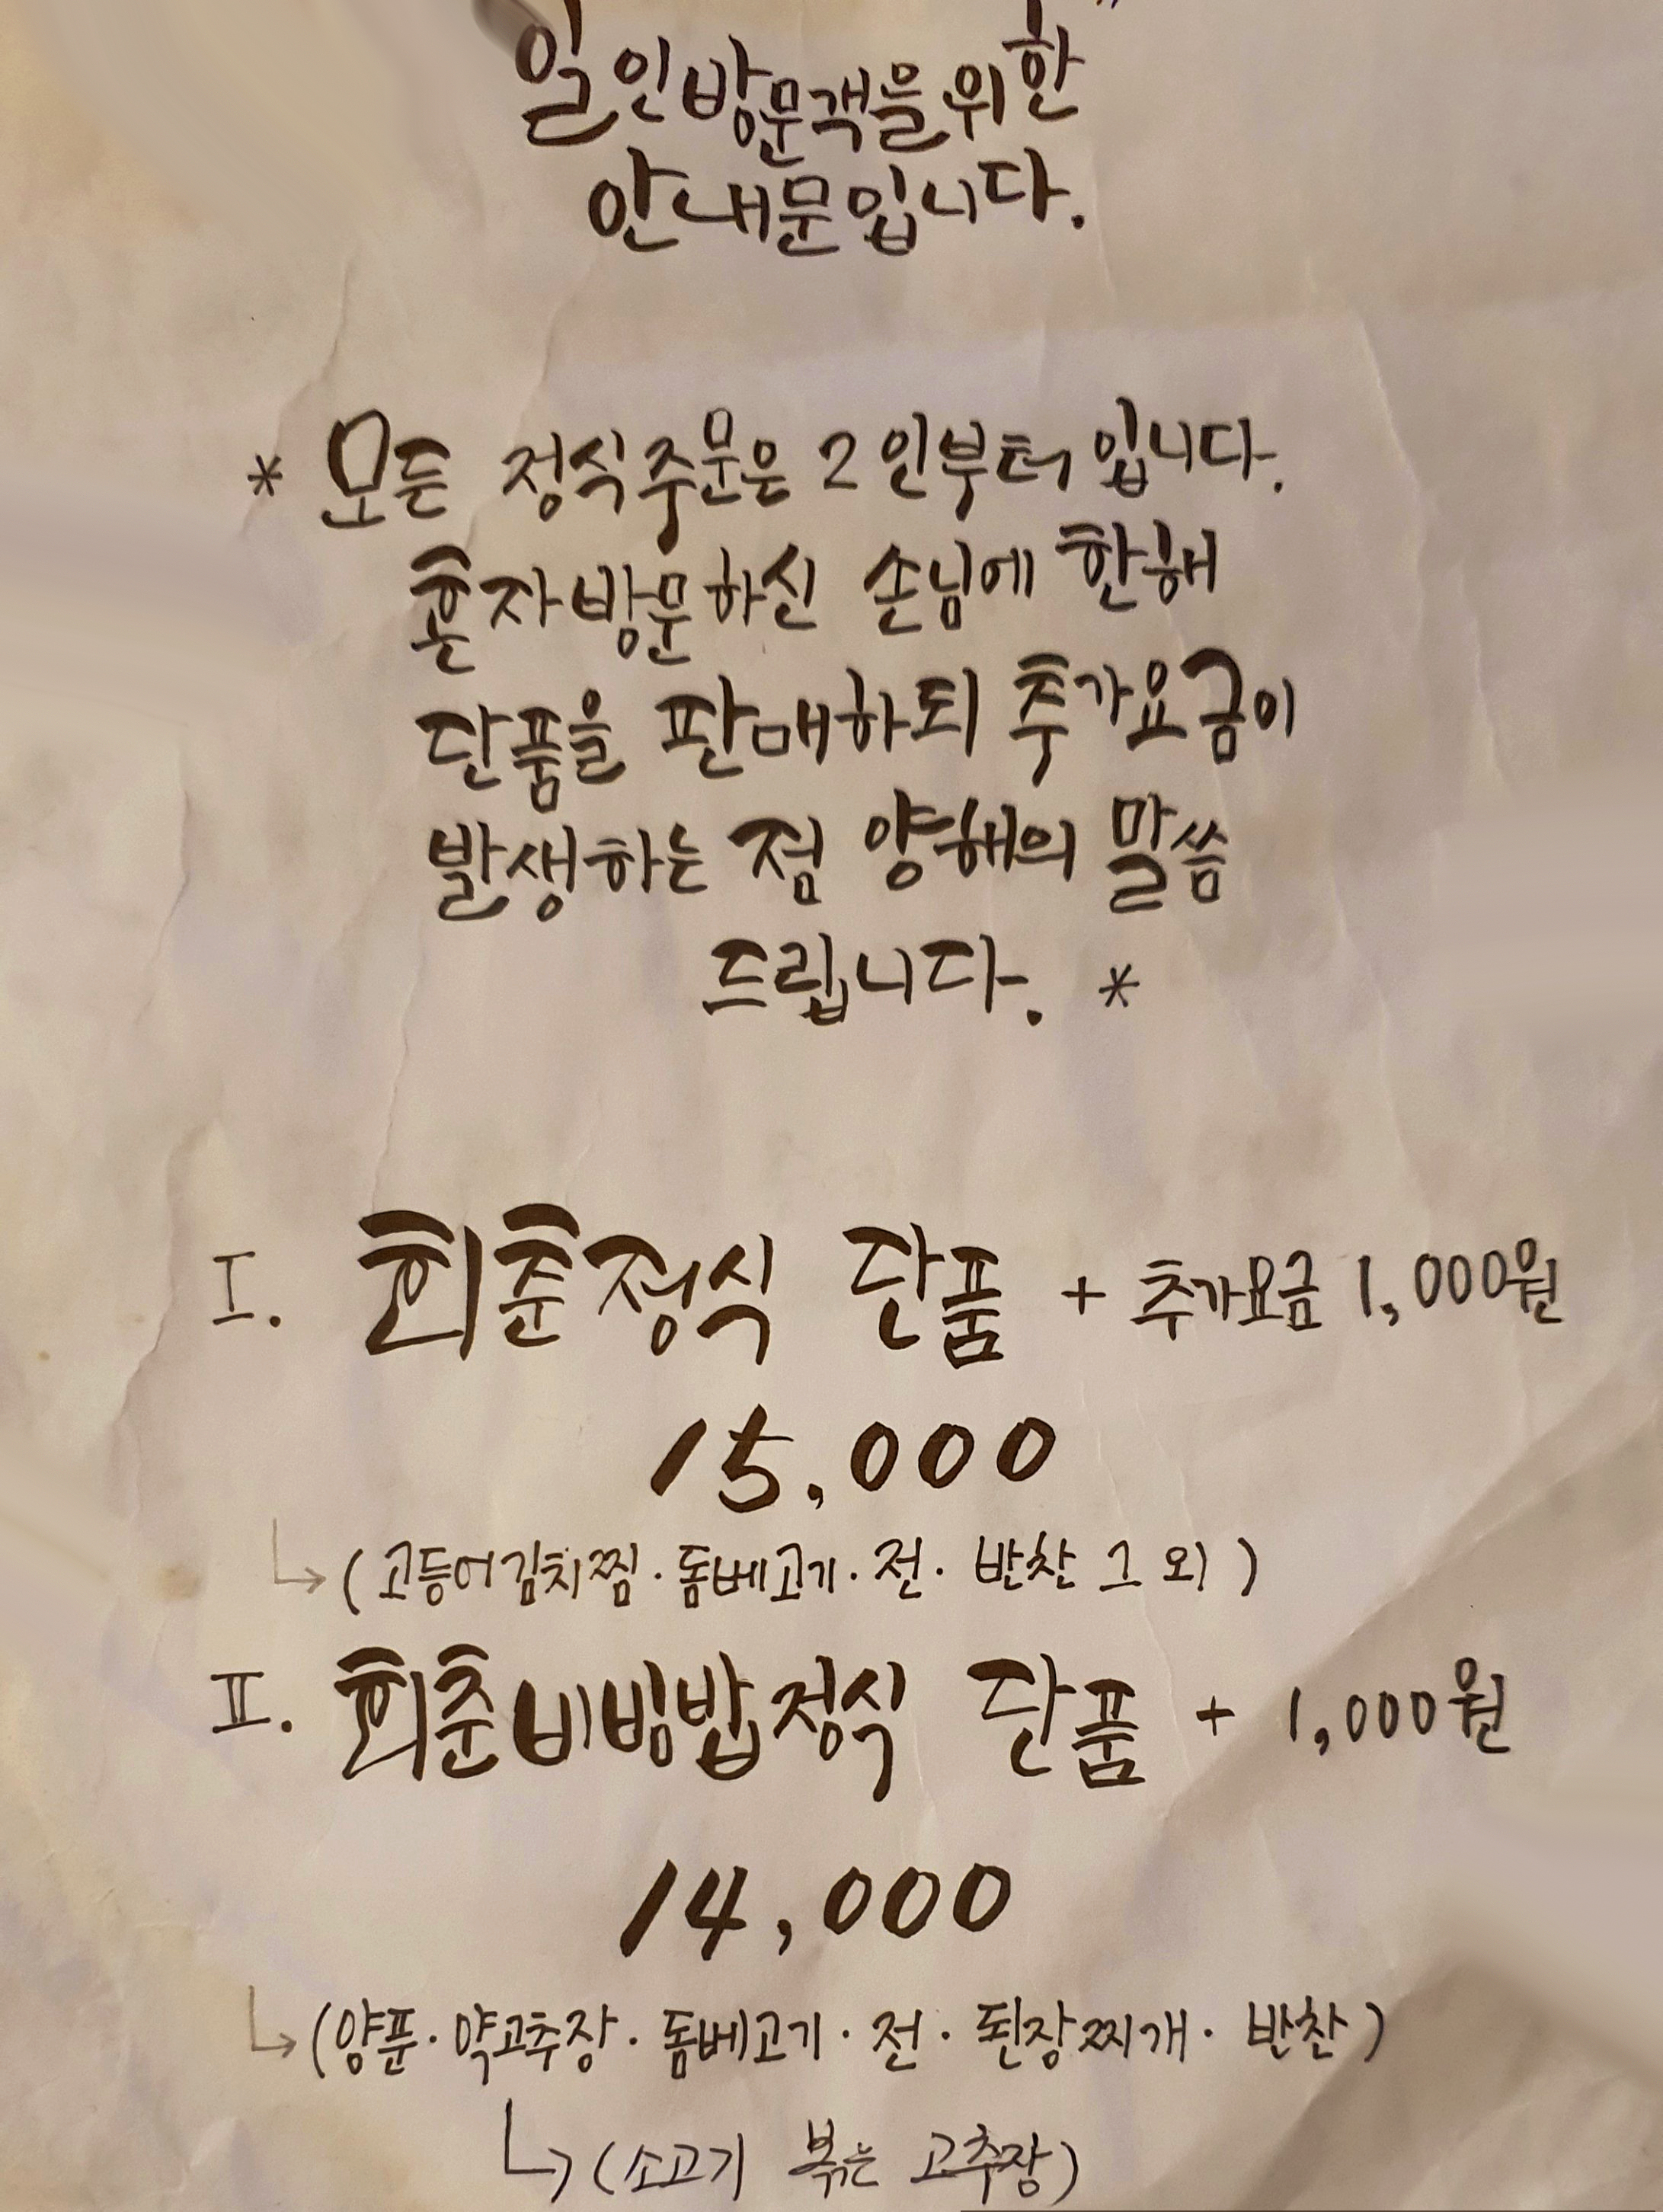 일인방문객을위한
안내문입니다.
* 모든 정식주문은 2인부터 입니다.
혼자방문하신 손님에 한해
단품을 판매하되 추가요금이
발생하는 점 양해의 말씀
드립니다. *
I. 회춘정식 단품 + 추가요금 1,000원
15,000
(고등어김치찜·돔베고기·전·반찬 그 외)
II. 회춘비빔밥정식 단품 + 1,000원
14,000
(양푼·약고추장·돔베고기·전·된장찌개·반찬)
(소고기 볶은 고추장)